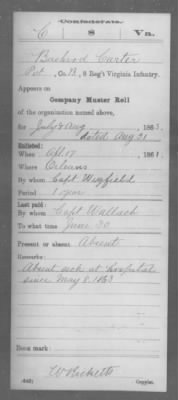 Confederate.
C 8 Va.
Bushrod Carter
Pvt, Co. B, 8 Reg't Virginia Infantry.
Appears on
Company Muster Roll
of the organization named above,
for July & Aug, 1863.
dated Aug 21
Enlisted:
When 186
Where Orleans
By whom Capt
Period 1 year
Last paid:
By whom Capt Wallach
To what time June 30
Present or absent Absent
Remarks:
Absent sick at Hospital
since May 8. 1863
Book mark:
(642) Copyist.